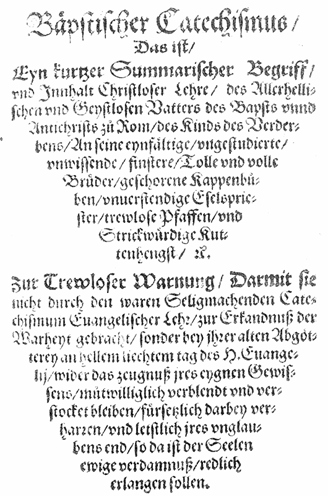 Bäpstischer Catechismus /
Das ist /
Eyn kurtzer Summarischer Begriff /
vnd Innhalt Christloser Lehre / des Allerhelli-
schen vnd Geystlosen Vatters des Bapsts vnnd
Antichrists zů Rom / des Kinds des Verder-
bens / An seine eynfältige / vngestudierte /
vnwissende / finstere / Tolle vnd volle
Brüder / geschorene Kappenbů-
ben / vnuerstendige Eselsprie-
ster / trewlose Pfaffen / vnd
Strickwürdige Kut-
tenhengst / ꝛc.
Zur Trewloser Warnung / Darmit sie
nicht durch den waren Seligmachenden Cate-
chismum Euangelischer Lehr / zur Erkandnuß der
Warheyt gebracht / sonder bey jhrer alten Abgöt-
terey an hellem liechtem tag des H. Euange-
lij / wider das zeugnuß jres eygnen Gewis-
sens / můtwilliglich verblendt vnd ver-
stocket bleiben / fürsetzlich darbey ver-
harren / vnd letstlich jres vnglau-
bens end / so da ist der Seelen
ewige verdamnuß / redlich
erlangen sollen.